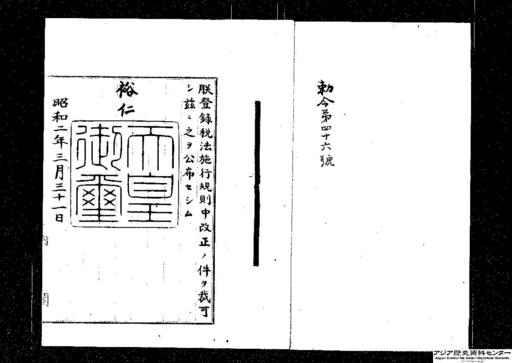 勅令第四十六號
朕登録税法施行規則中改正ノ件ヲ裁可
シ茲ニ之ヲ公布セシム
裕仁
天皇
御璽
昭和二年三月三十一日
アジア歴史資料センター
Japan Center for Asian Historical Records